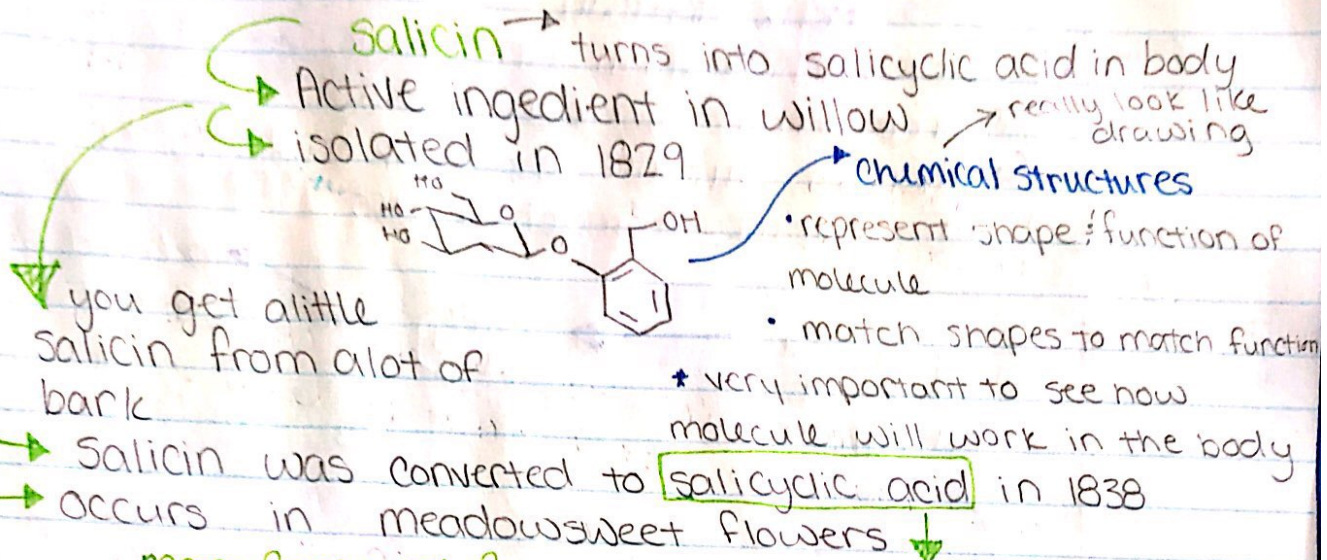 salicin → turns into salicyclic acid in body
Active ingedient in willow
isolated in 1829
→ really look like
drawing
chemical structures
• represent shape & function of
molecule
• match shapes to match function
* very important to see how
molecule will work in the body
HO
HO
HO
O
O
OH
you get alittle
salicin from alot of
bark
→ Salicin was converted to salicyclic acid in 1838
→ occurs in meadowsweet flowers